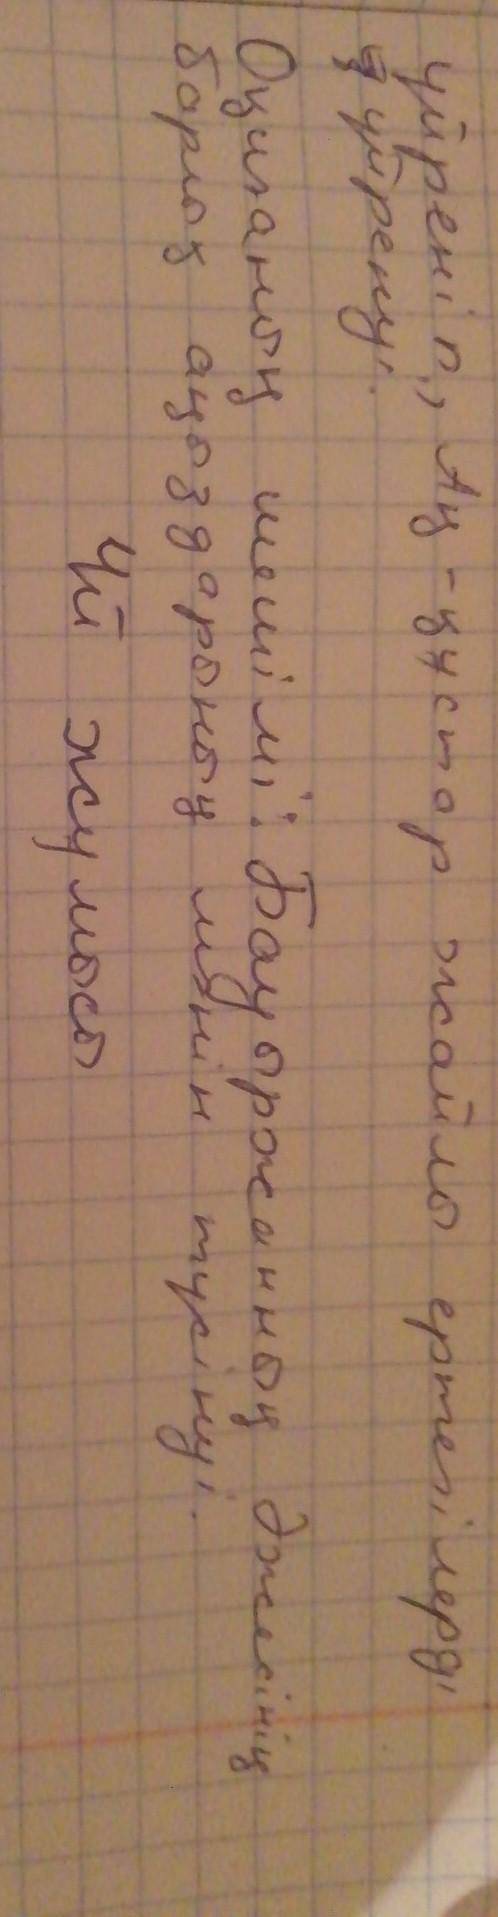 үйреніп, Аң-құстар жайлы ертегілерді
үйренуі.
Оқиғаның шешімі: Бауыржанның әжесінің
барлық аңыздарының мәнін түсінуі.
Үй жұмысы